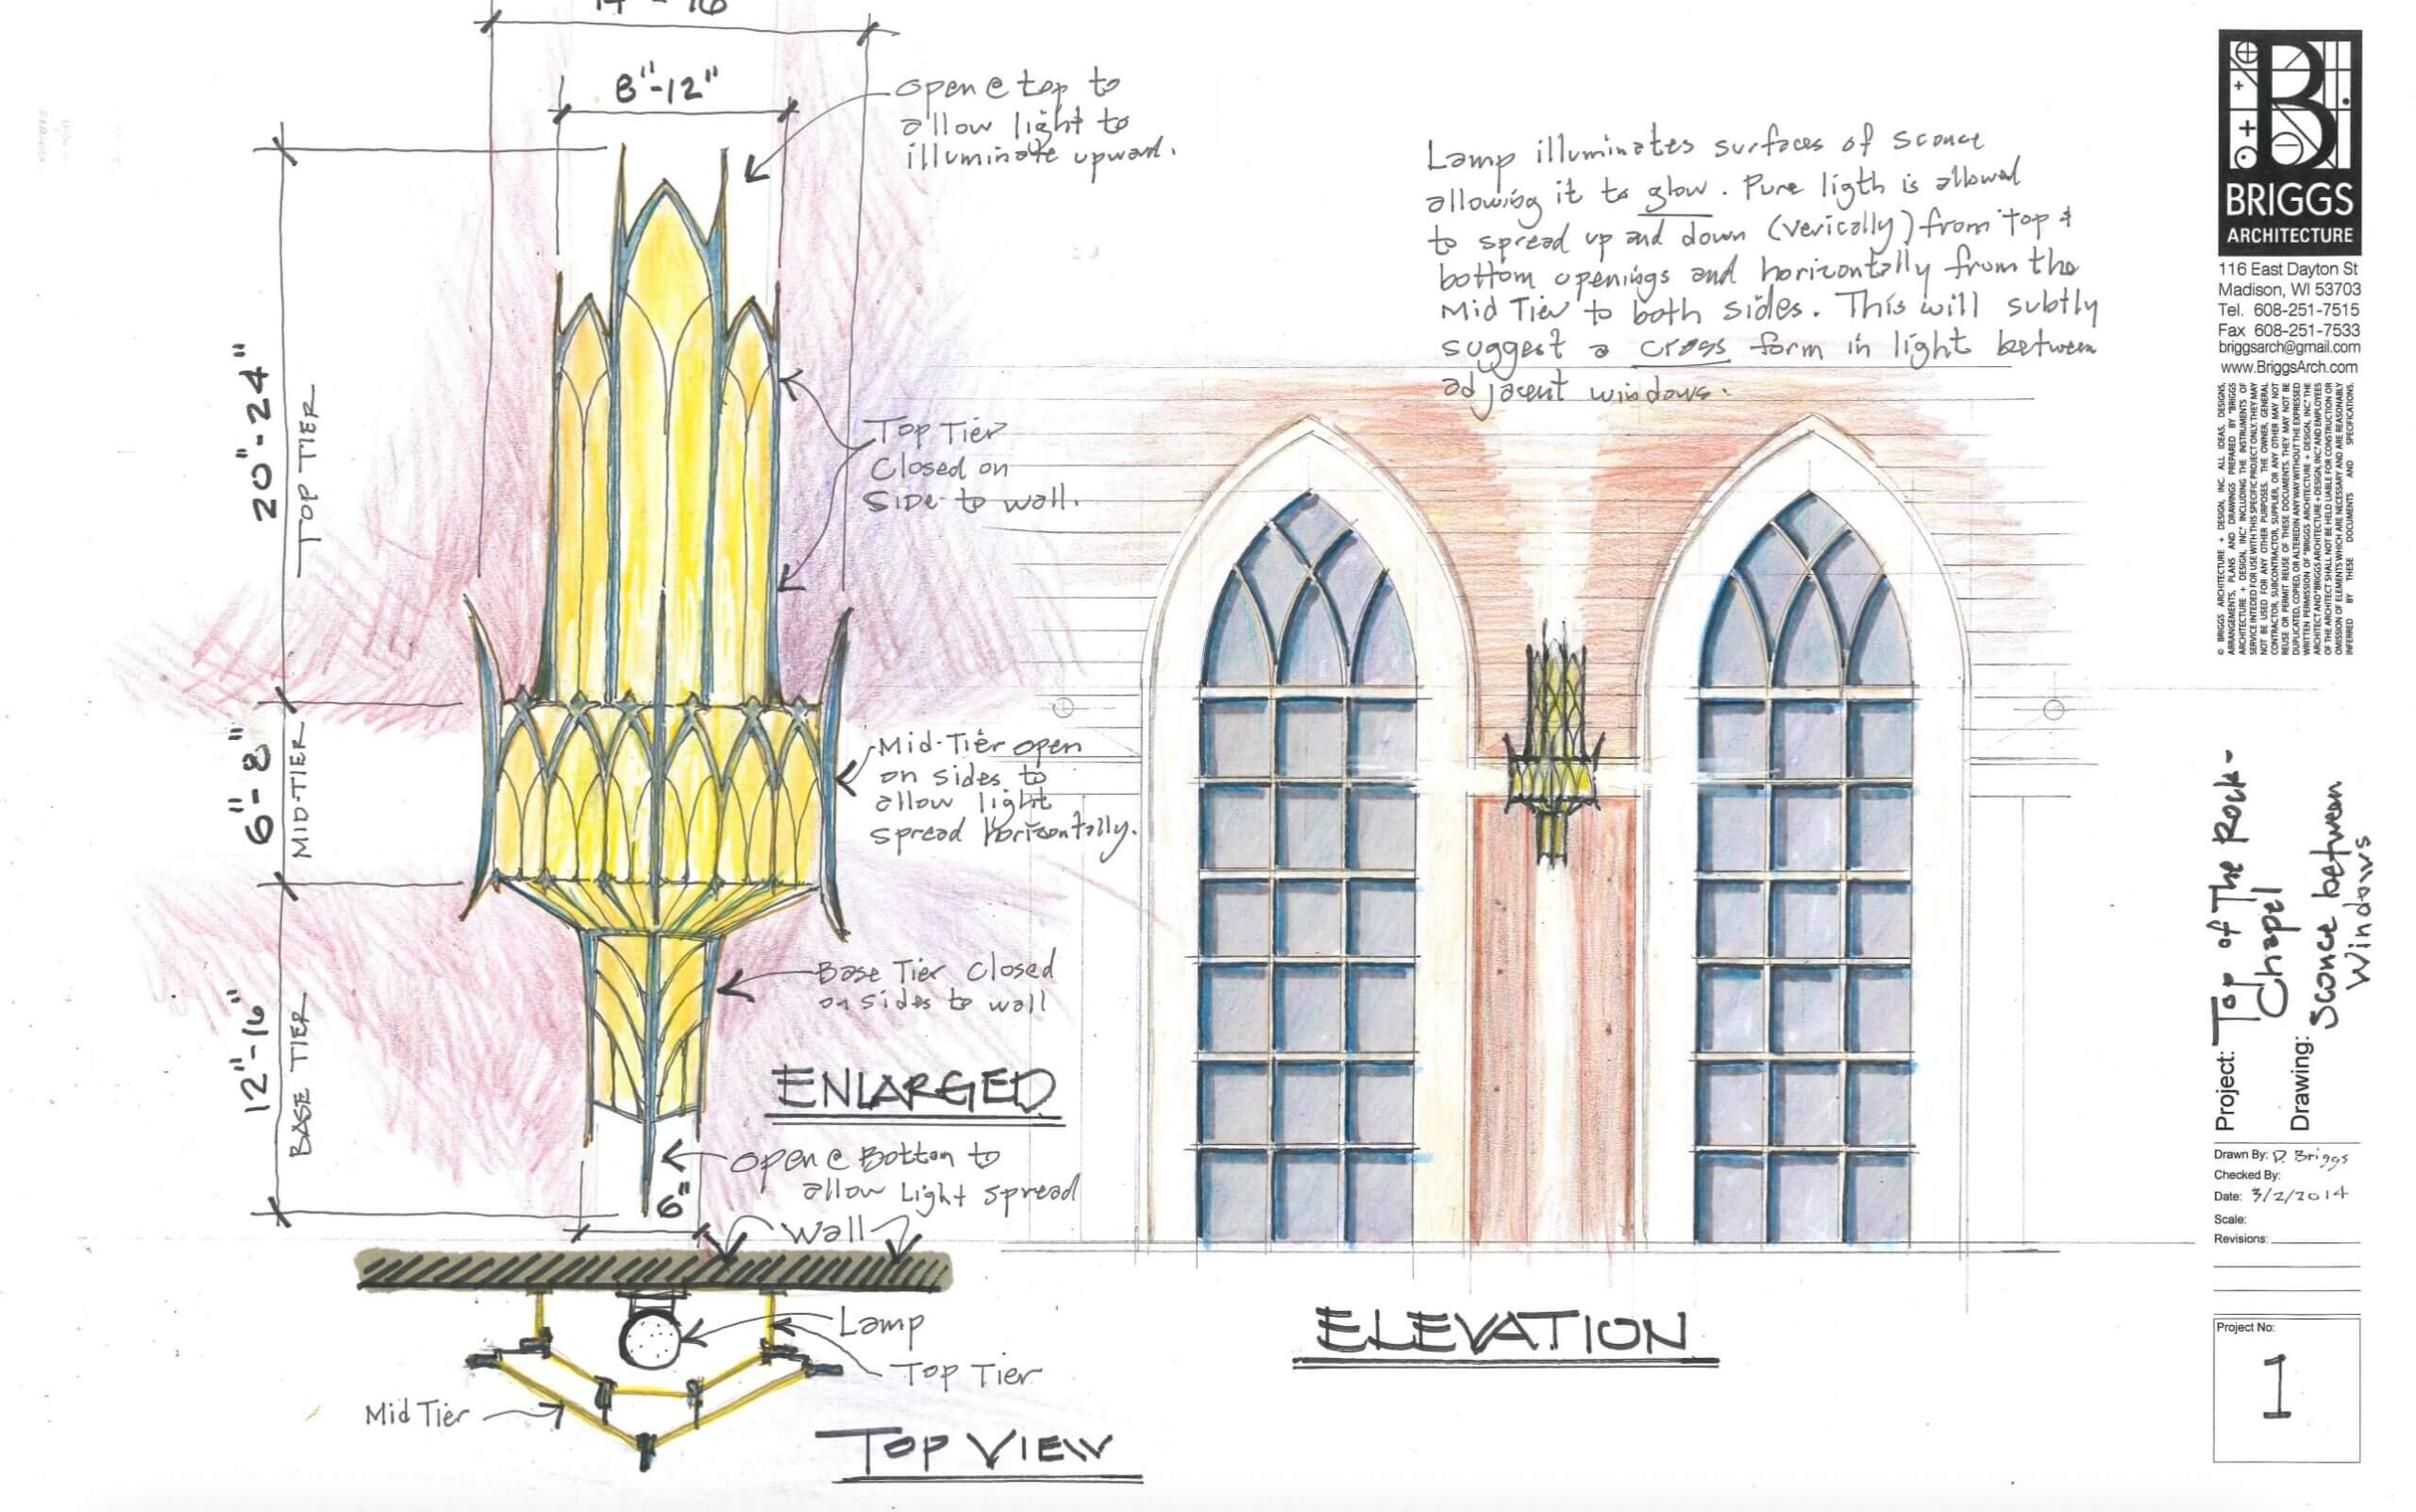 8"-12"
open @ top to
allow light to
illuminate upward.
20"-24"
TOP TIER
Top Tier
Closed on
Side to wall.
6"-8"
MID TIER
Mid-Tier open
on sides to
allow light
spread horizontally.
12"-16"
BASE TIER
Base Tier Closed
on sides to wall
ENLARGED
open @ Bottom to
allow Light spread
6"
Wall
Lamp
Top Tier
Mid Tier
TOP VIEW
Lamp illuminates surfaces of sconce
allowing it to glow. Pure ligth is allowed
to spread up and down (verically) from top &
bottom openings and horizontally from the
Mid Tier to both sides. This will subtly
suggest a cross form in light between
adjacent windows.
ELEVATION
B
BRIGGS
ARCHITECTURE
116 East Dayton St
Madison, WI 53703
Tel. 608-251-7515
Fax 608-251-7533
briggsarch@gmail.com
www.BriggsArch.com
© BRIGGS ARCHITECTURE + DESIGN, INC. ALL IDEAS, DESIGNS,
ARRANGEMENTS, PLANS AND DRAWINGS PREPARED BY "BRIGGS
ARCHITECTURE + DESIGN, INC." INCLUDING THE INSTRUMENTS OF
SERVICE INTEDED FOR USE WITH THIS SPECIFIC PROJECT ONLY. THEY MAY
NOT BE USED FOR ANY OTHER PURPOSES. THE OWNER, GENERAL
CONTRACTOR, SUBCONTRACTOR, SUPPLIER, OR ANY OTHER MAY NOT
REUSE OR PERMIT REUSE OF THESE DOCUMENTS. THEY MAY NOT BE
DUPLICATED, COPIED, OR ALTERED IN ANY WAY WITHOUT THE EXPRESSED
WRITTEN PERMISSION OF "BRIGGS ARCHITECTURE + DESIGN, INC." THE
ARCHITECT AND "BRIGGS ARCHITECTURE + DESIGN, INC." AND EMPLOYEES
OF THE ARCHITECT SHALL NOT BE HELD LIABLE FOR CONSTRUCTION OR
OMISSION OF ELEMENTS WHICH ARE NECESSARY AND ARE REASONABLY
INFERRED BY THESE DOCUMENTS AND SPECIFICATIONS.
Project: Top of The Rock-
Chapel
Drawing: Sconce between
Windows
Drawn By: D. Briggs
Checked By:
Date: 3/2/2014
Scale:
Revisions:
Project No:
1